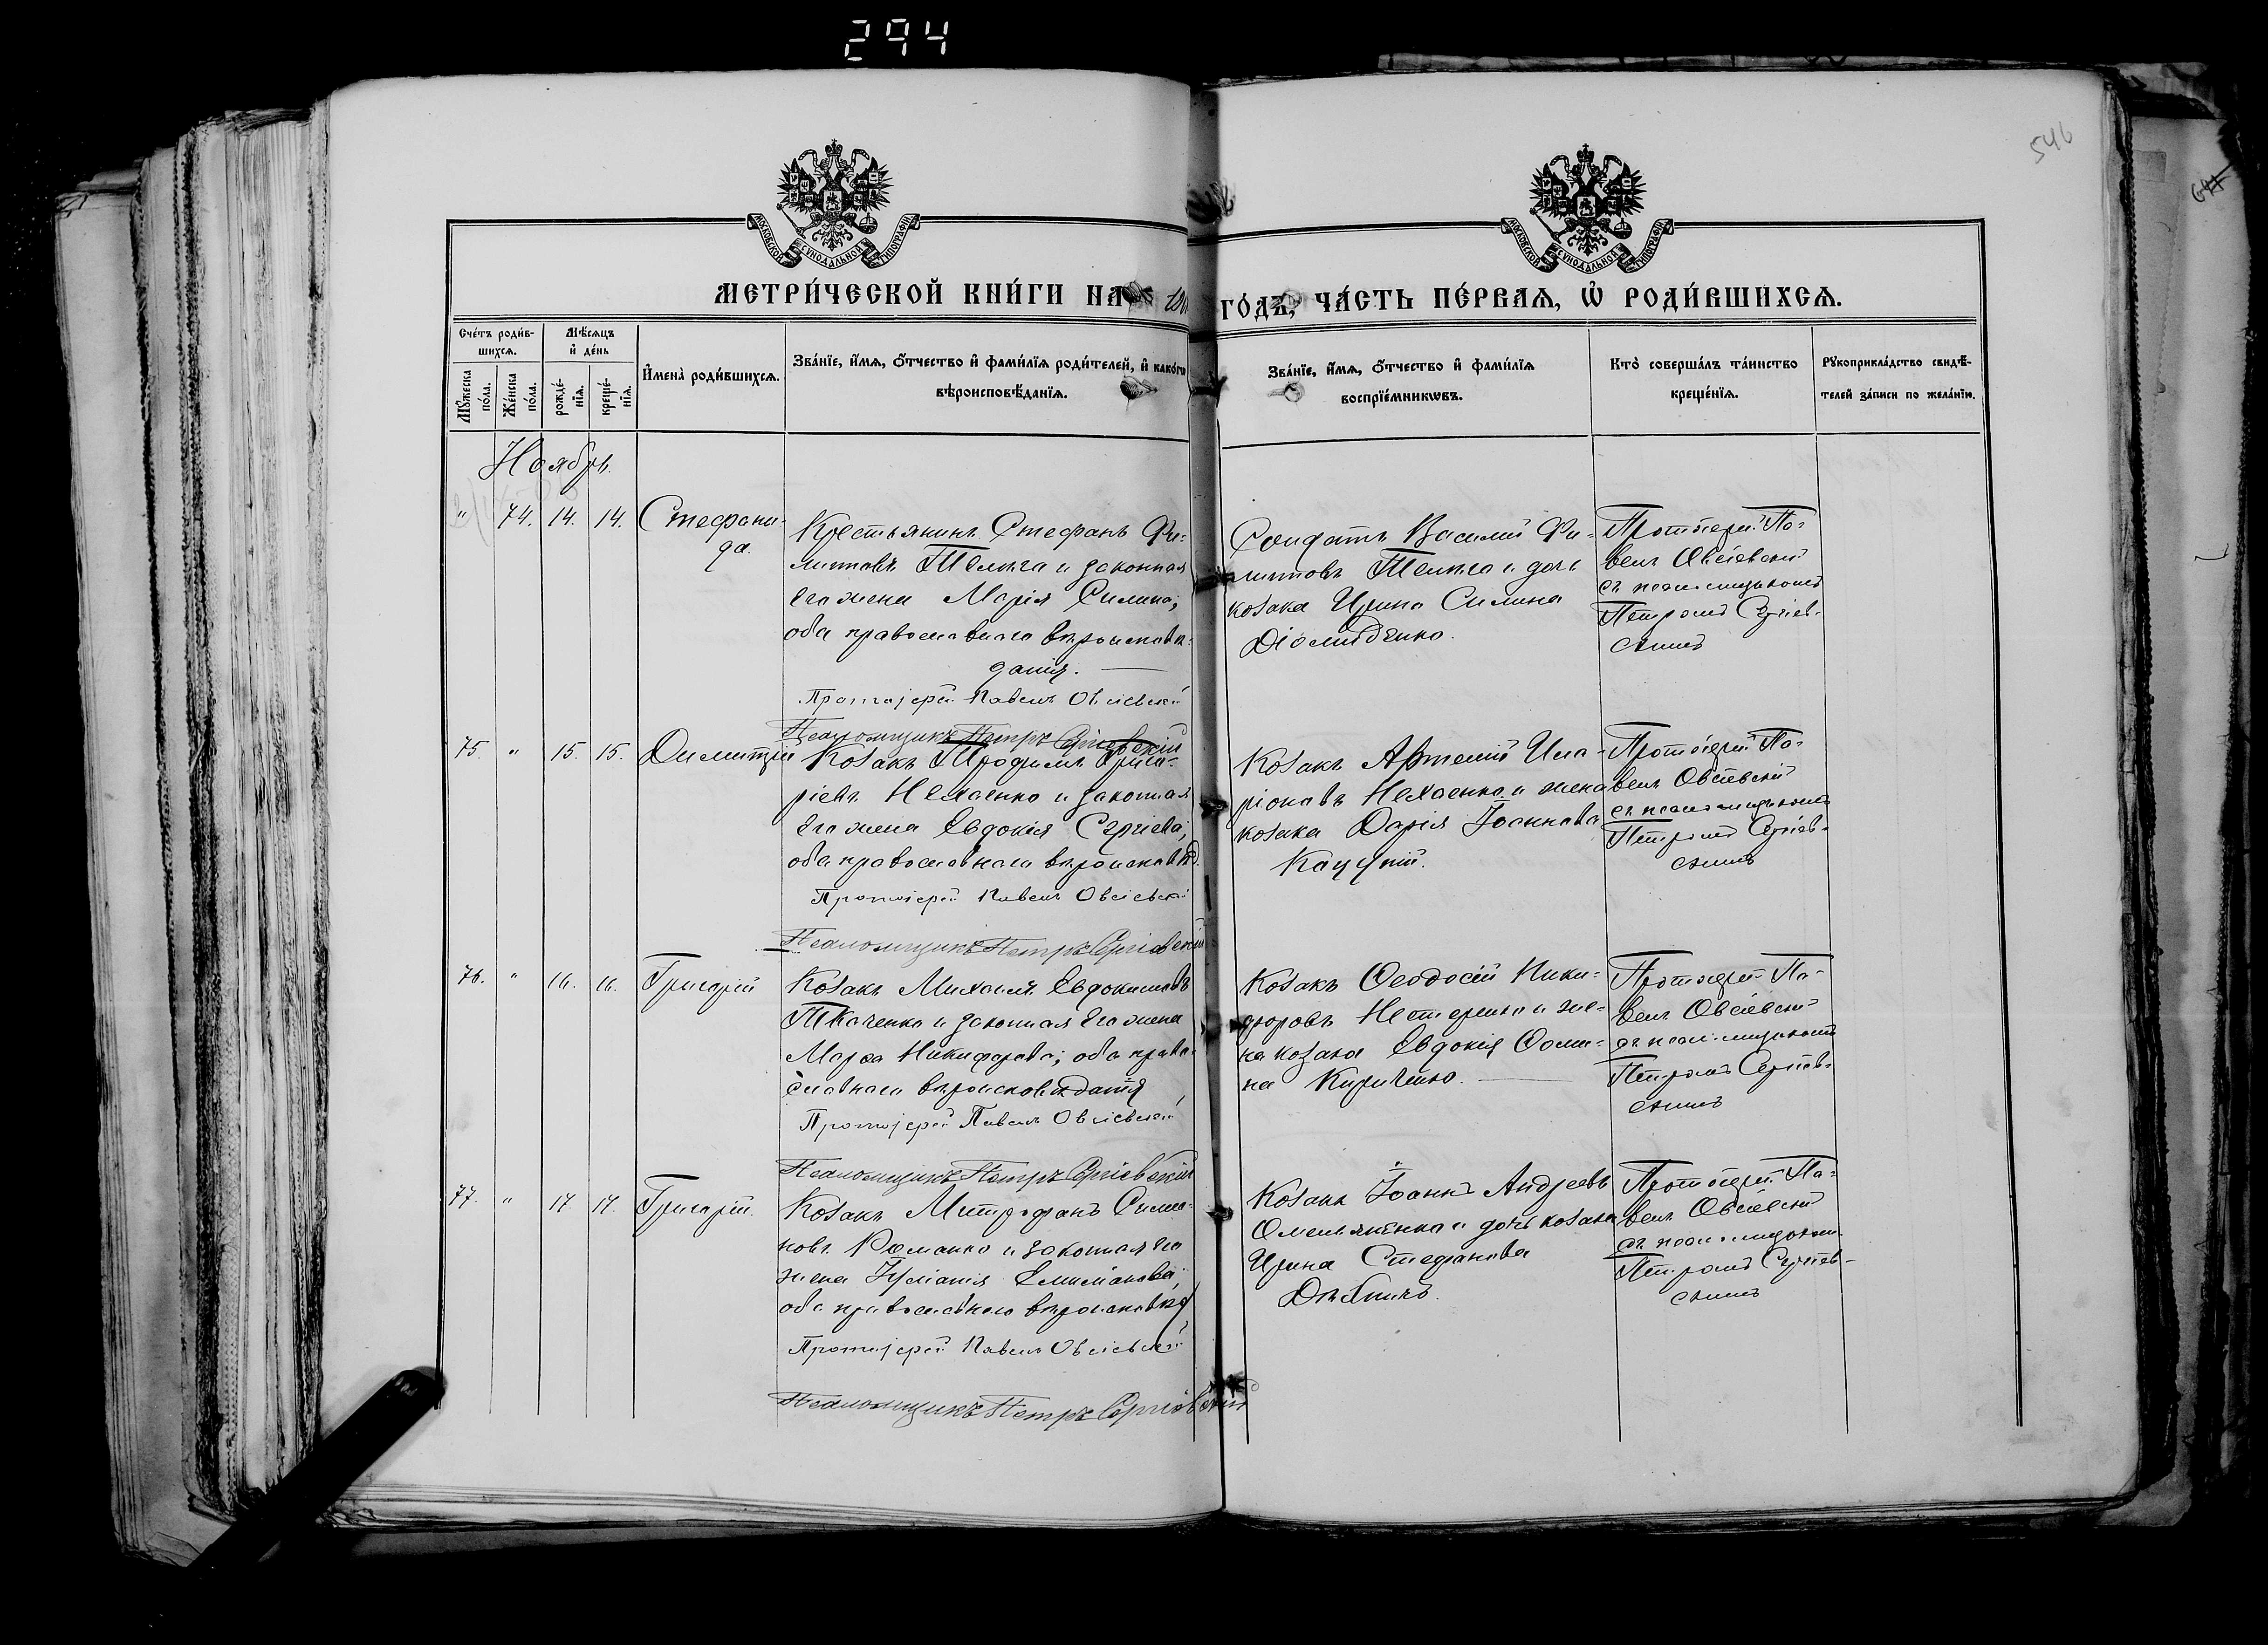 294
546
МОСКОВСКОЙ СѴНОДАЛЬНОЙ ТИПОГРАФІИ
МОСКОВСКОЙ СѴНОДАЛЬНОЙ ТИПОГРАФІИ
МЕТРИ́ЧЕСКОЙ КНИ́ГИ НА
ГО́ДЪ, ЧА́СТЬ ПЕ́РВАЯ, Ѡ РОДИ́ВШИХСЯ.
Сче́тъ роди́в-
шихся.
Мѣ́сяцъ
и де́нь
Му́жеска по́ла.
Же́нска по́ла.
рожде́-
нїя.
креще́-
нїя.
Имена̀ роди́вшихся.
Зва́нїе, и́мя, о́тчество и фами́лїя роди́телей, и како́гѡ
вѣроисповѣ́данїя.
Зва́нїе, и́мя, о́тчество и фами́лїя
воспрїе́мникѡвъ.
Кто̀ соверша́лъ та́инство
креще́нїя.
Рꙋкоприкла́дство свидѣ́-
телей за́писи по жела́нїю.
Ноябрь.
" 74. 14. 14. Стефани-
да.
Крестьянинъ Стефанъ Фи-
липповъ Телига и законная
его жена Марія Силина,
оба православнаго вѣроисповѣ-
данія.
Протоіерей Павелъ Овсіевскій
Псаломщикъ Петръ Сергіевскій
Солдатъ Василій Фи-
липповъ Телига и дочь
козака Ирина Силина
Діомидченко.
Протоіерей Па-
велъ Овсіевскій
съ псаломщикомъ
Петромъ Сергіев-
скимъ
75. " 15. 15. Димитрій
Козакъ Трофимъ Григо-
ріевъ Нехаенко и законная
его жена Евдокія Сергіева,
оба православнаго вѣроисповѣд.
Протоіерей Павелъ Овсіевскій
Псаломщикъ Петръ Сергіевскій
Козакъ Артемій Ила-
ріоновъ Нехаенко и жена
козака Дарія Іоаннова
Кацупій.
Протоіерей Па-
велъ Овсіевскій
съ псаломщикомъ
Петромъ Сергіев-
скимъ
76. " 16. 16. Григорій
Козакъ Михаилъ Евдокимовъ
Ткаченко и законная его жена
Марѳа Никифорова; оба право-
славнаго вѣроисповѣданія
Протоіерей Павелъ Овсіевскій
Псаломщикъ Петръ Сергіевскій
Козакъ Ѳеодосій Ники-
форовъ Нестеренко и же-
на козака Евдокія Ѳоми-
на Киричено.
Протоіерей Па-
велъ Овсіевскій
съ псаломщикомъ
Петромъ Сергіев-
скимъ
77. " 17. 17. Григорій.
Козакъ Митрофанъ Симо-
новъ Романко и законная его
жена Іуліанія Емиліанова;
оба православнаго вѣроисповѣд
Протоіерей Павелъ Овсіевскій
Псаломщикъ Петръ Сергіевскій
Козакъ Іоаннъ Андреевъ
Омельяненко и дочь козака
Ирина Стефанова
Протоіерей Па-
велъ Овсіевскій
съ псаломщикомъ
Петромъ Сергіев-
скимъ